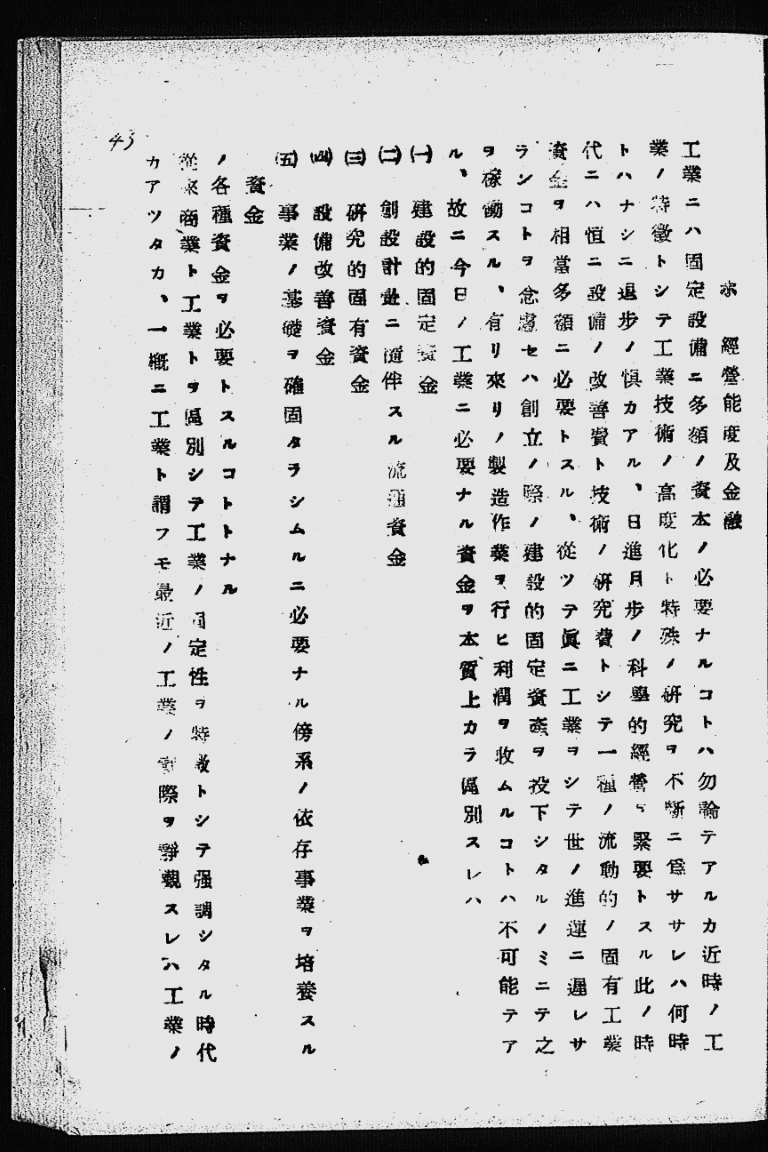 ホ 經營能度及金融
工業ニハ固定設備ニ多額ノ資本ノ必要ナルコトハ勿論テアルカ近時ノ工
業ノ特徵トシテ工業技術ノ高度化ト特殊ノ硏究ヲ不斷ニ爲ササレハ何時
トハナシニ退步ノ惧カアル、日進月步ノ科學的經營ヲ緊要トスル此ノ時
代ニハ恒ニ設備ノ改善費ト技術ノ硏究費トシテ一種ノ流動的ノ固有工業
資金ヲ相當多額ニ必要トスル、從ツテ眞ニ工業ヲシテ世ノ進運ニ遲レサ
ランコトヲ念慮セハ創立ノ際ノ建設的固定資產ヲ投下シタルノミニテ之
ヲ稼働スル、有リ來リノ製造作業ヲ行ヒ利潤ヲ收ムルコトハ不可能テア
ル、故ニ今日ノ工業ニ必要ナル資金ヲ本質上カラ區別スレハ
㈠ 建設的固定資金
㈡ 創設計畫ニ隨伴スル流通資金
㈢ 硏究的固有資金
㈣ 設備改善資金
㈤ 事業ノ基礎ヲ確固タラシムルニ必要ナル傍系ノ依存事業ヲ培養スル
資金
ノ各種資金ヲ必要トスルコトトナル
從來商業ト工業トヲ區別シテ工業ノ固定性ヲ特徵トシテ强調シタル時代
カアツタカ、一槪ニ工業ト謂フモ最近ノ工業ノ實際ヲ靜觀スレハ工業ノ
43